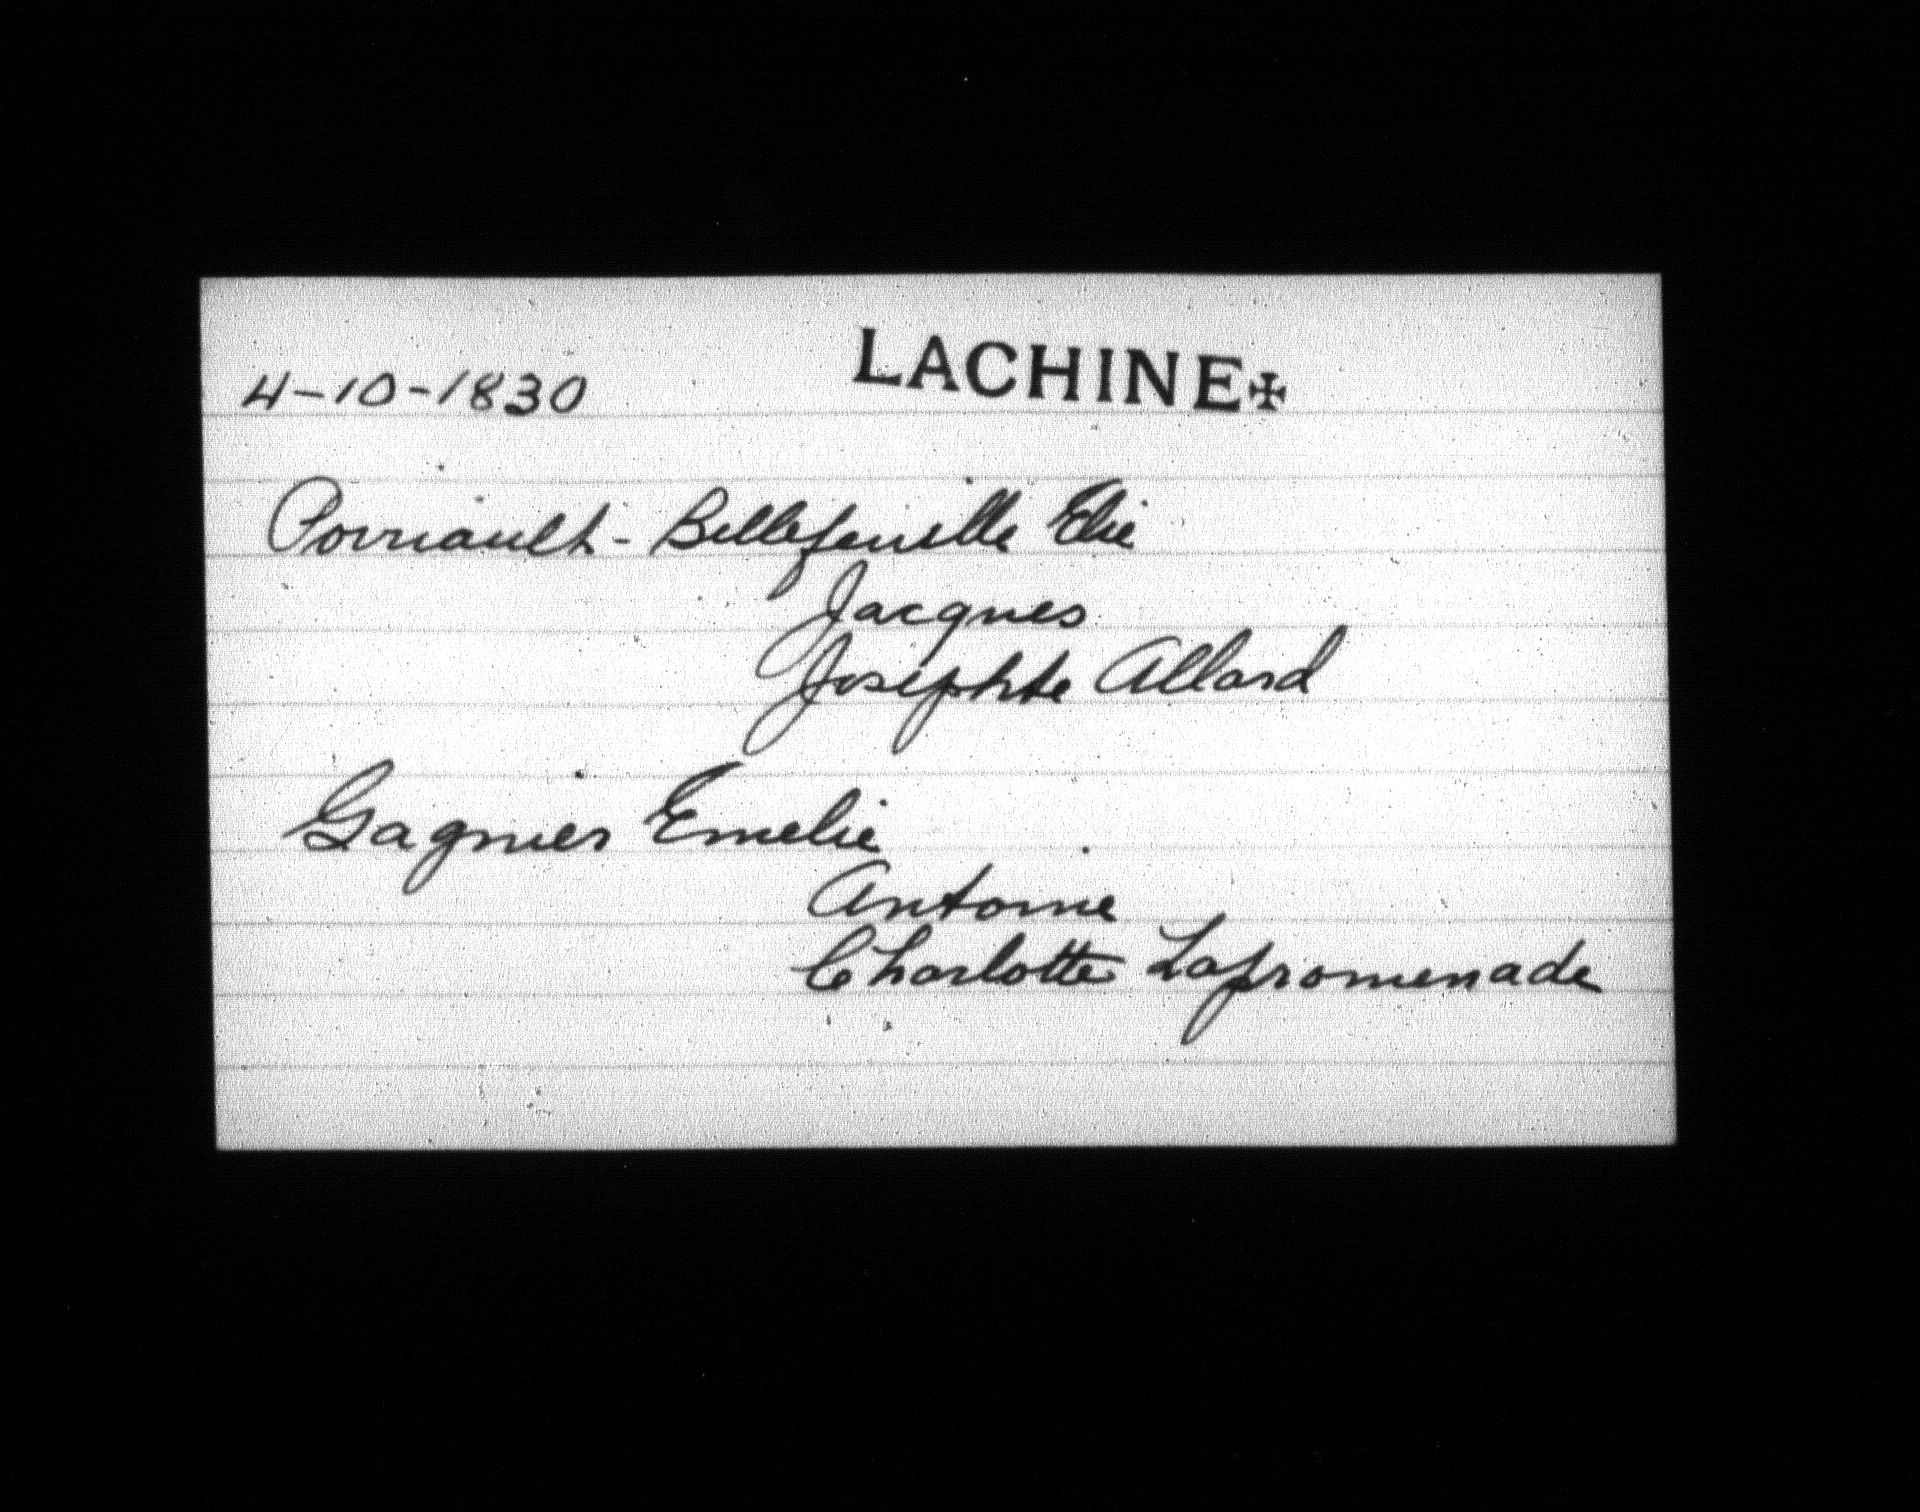 4-10-1830 LACHINE✠
Porriault-Bellefeuille Elie
Jacques
Josephte Allard
Gagnier Emelie
Antoine
Charlotte Lapromenade